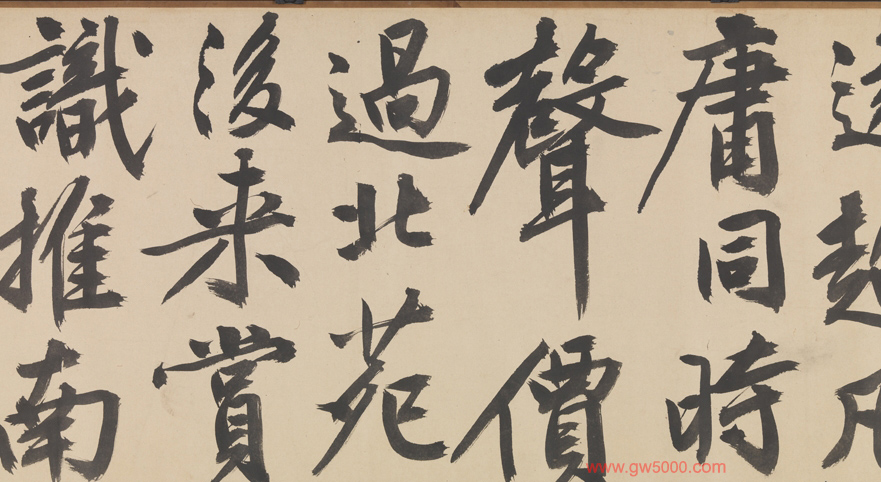 超凡
庸同時
聲價
過北苑
後来賞
識推南
www.gw5000.com